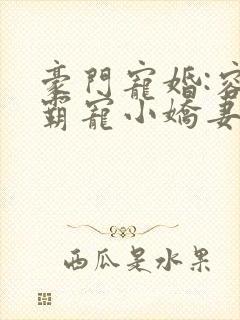 豪門寵婚:容
霸寵小嬌妻
西瓜是水果